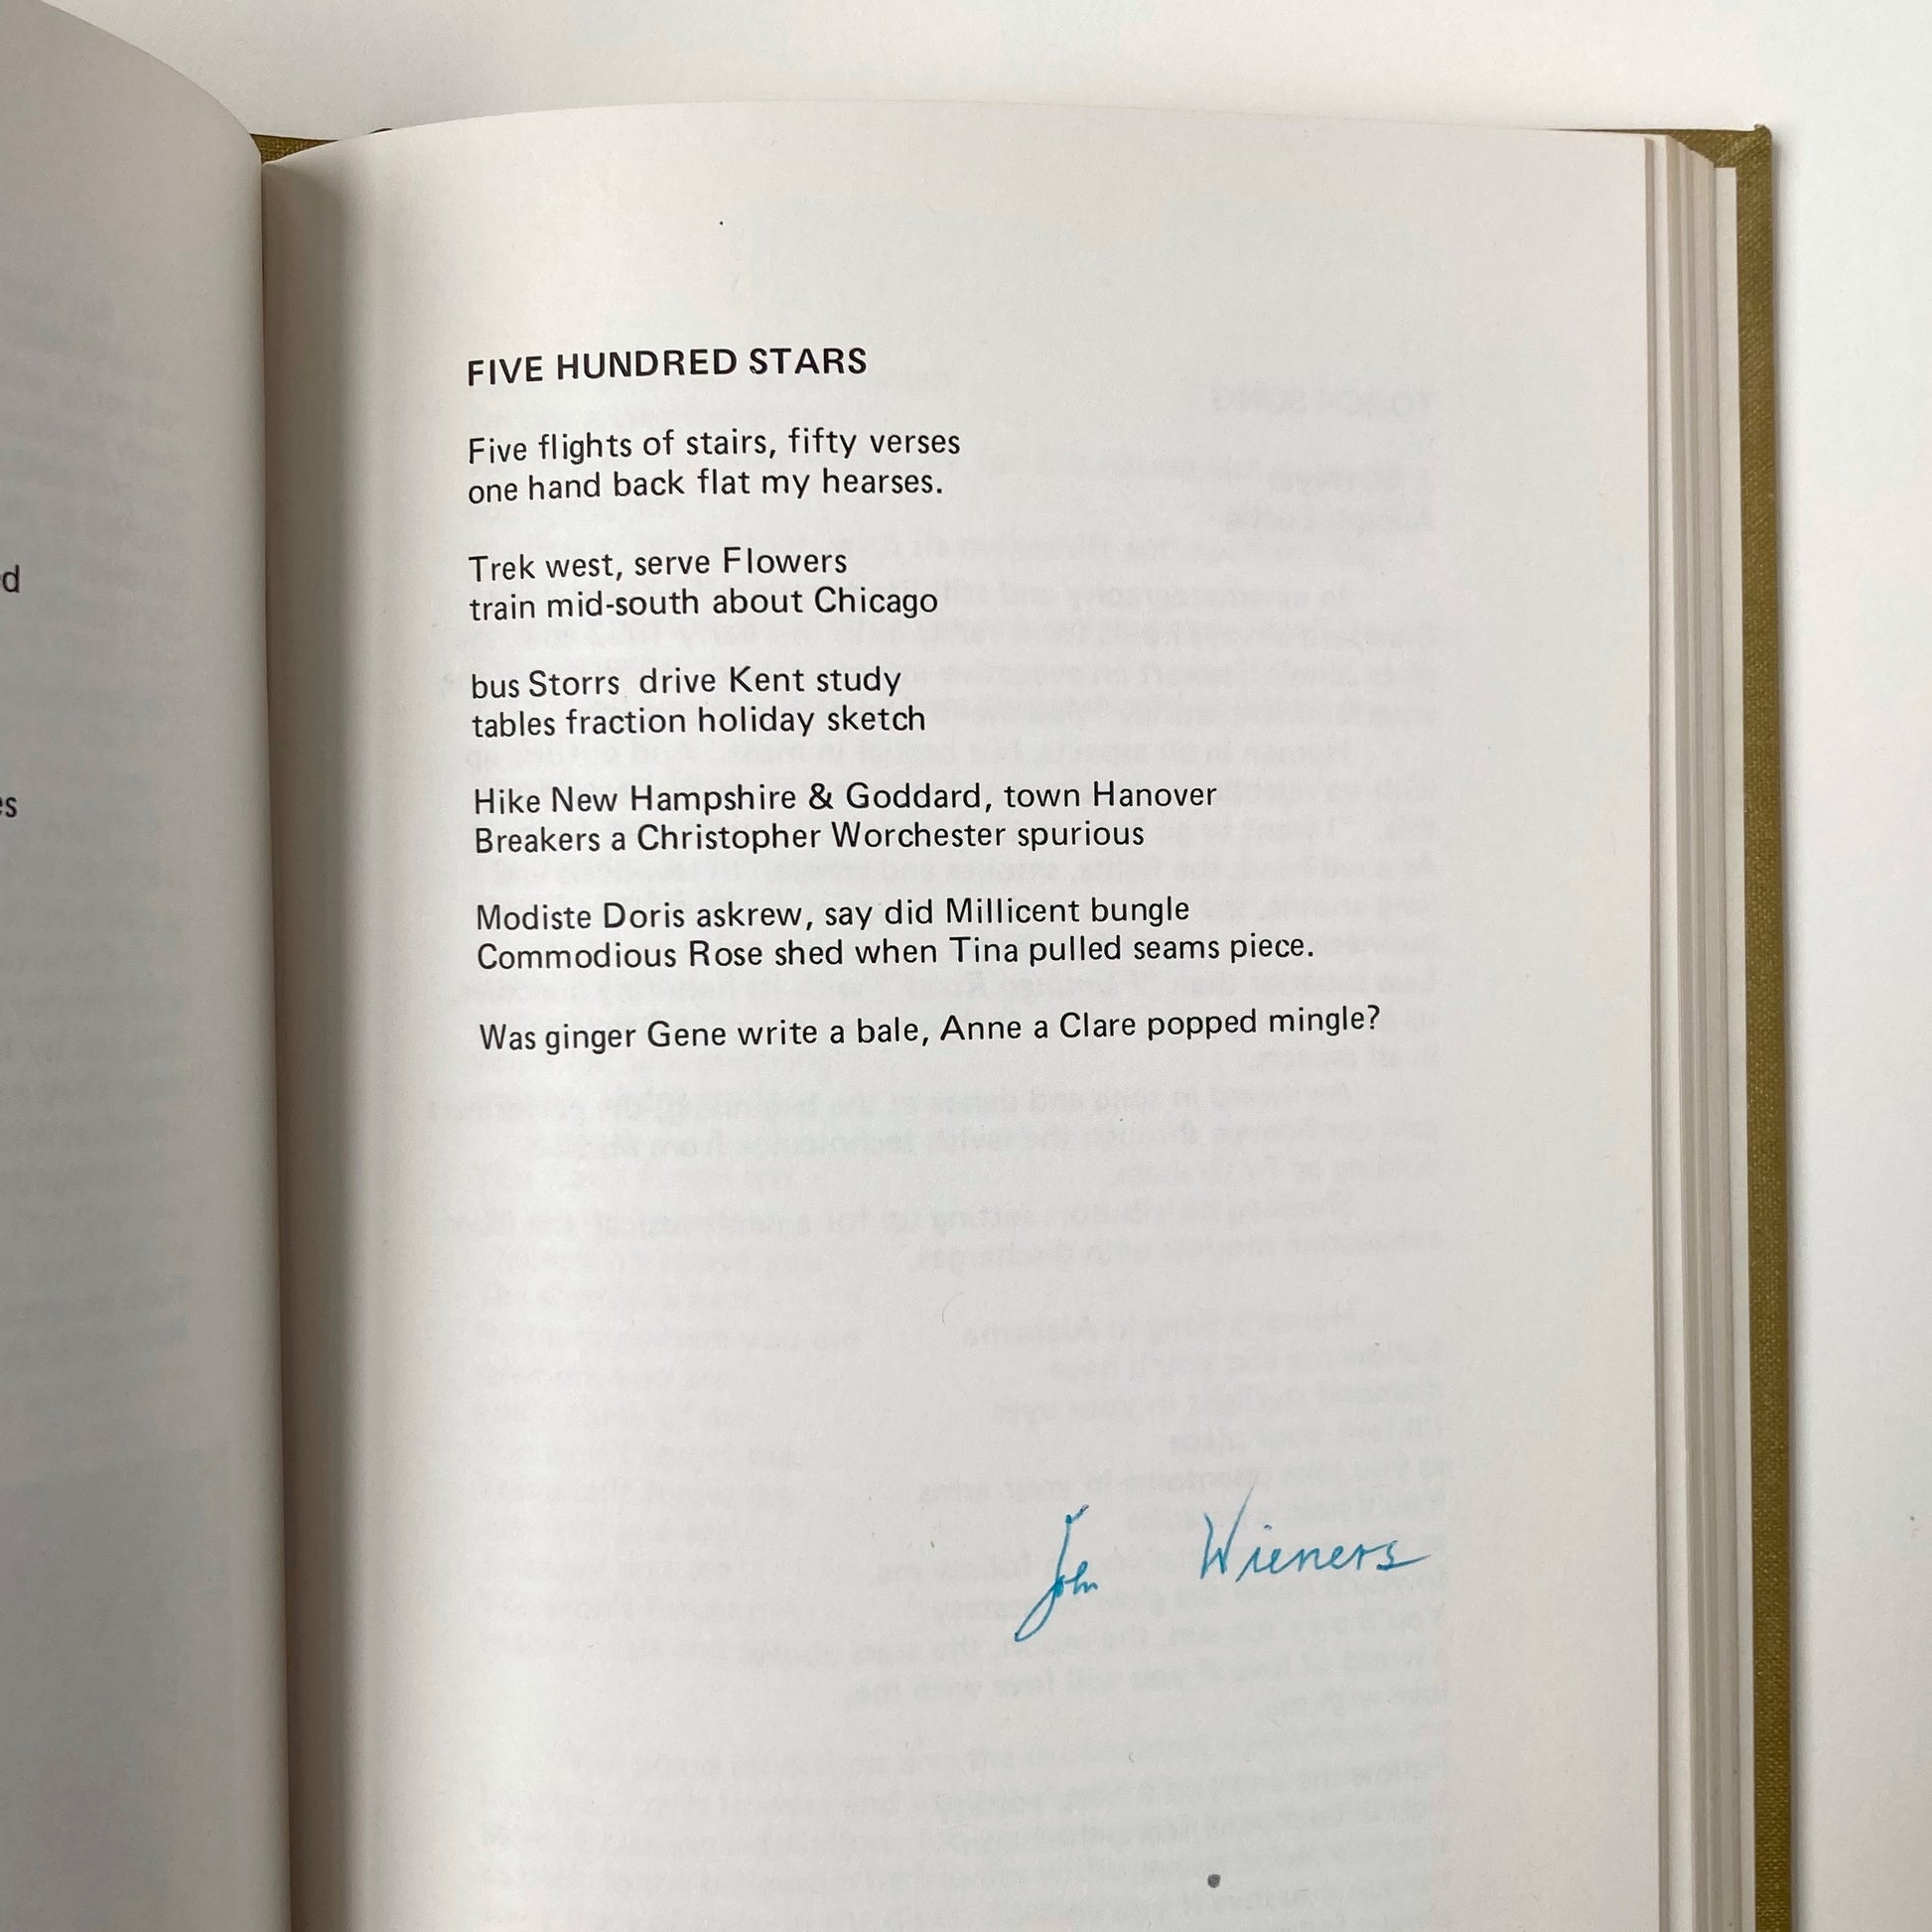 d
es
FIVE HUNDRED STARS
Five flights of stairs, fifty verses
one hand back flat my hearses.
Trek west, serve Flowers
train mid-south about Chicago
bus Storrs drive Kent study
tables fraction holiday sketch
Hike New Hampshire & Goddard, town Hanover
Breakers a Christopher Worchester spurious
Modiste Doris askrew, say did Millicent bungle
Commodious Rose shed when Tina pulled seams piece.
Was ginger Gene write a bale, Anne a Clare popped mingle?
John Wieners